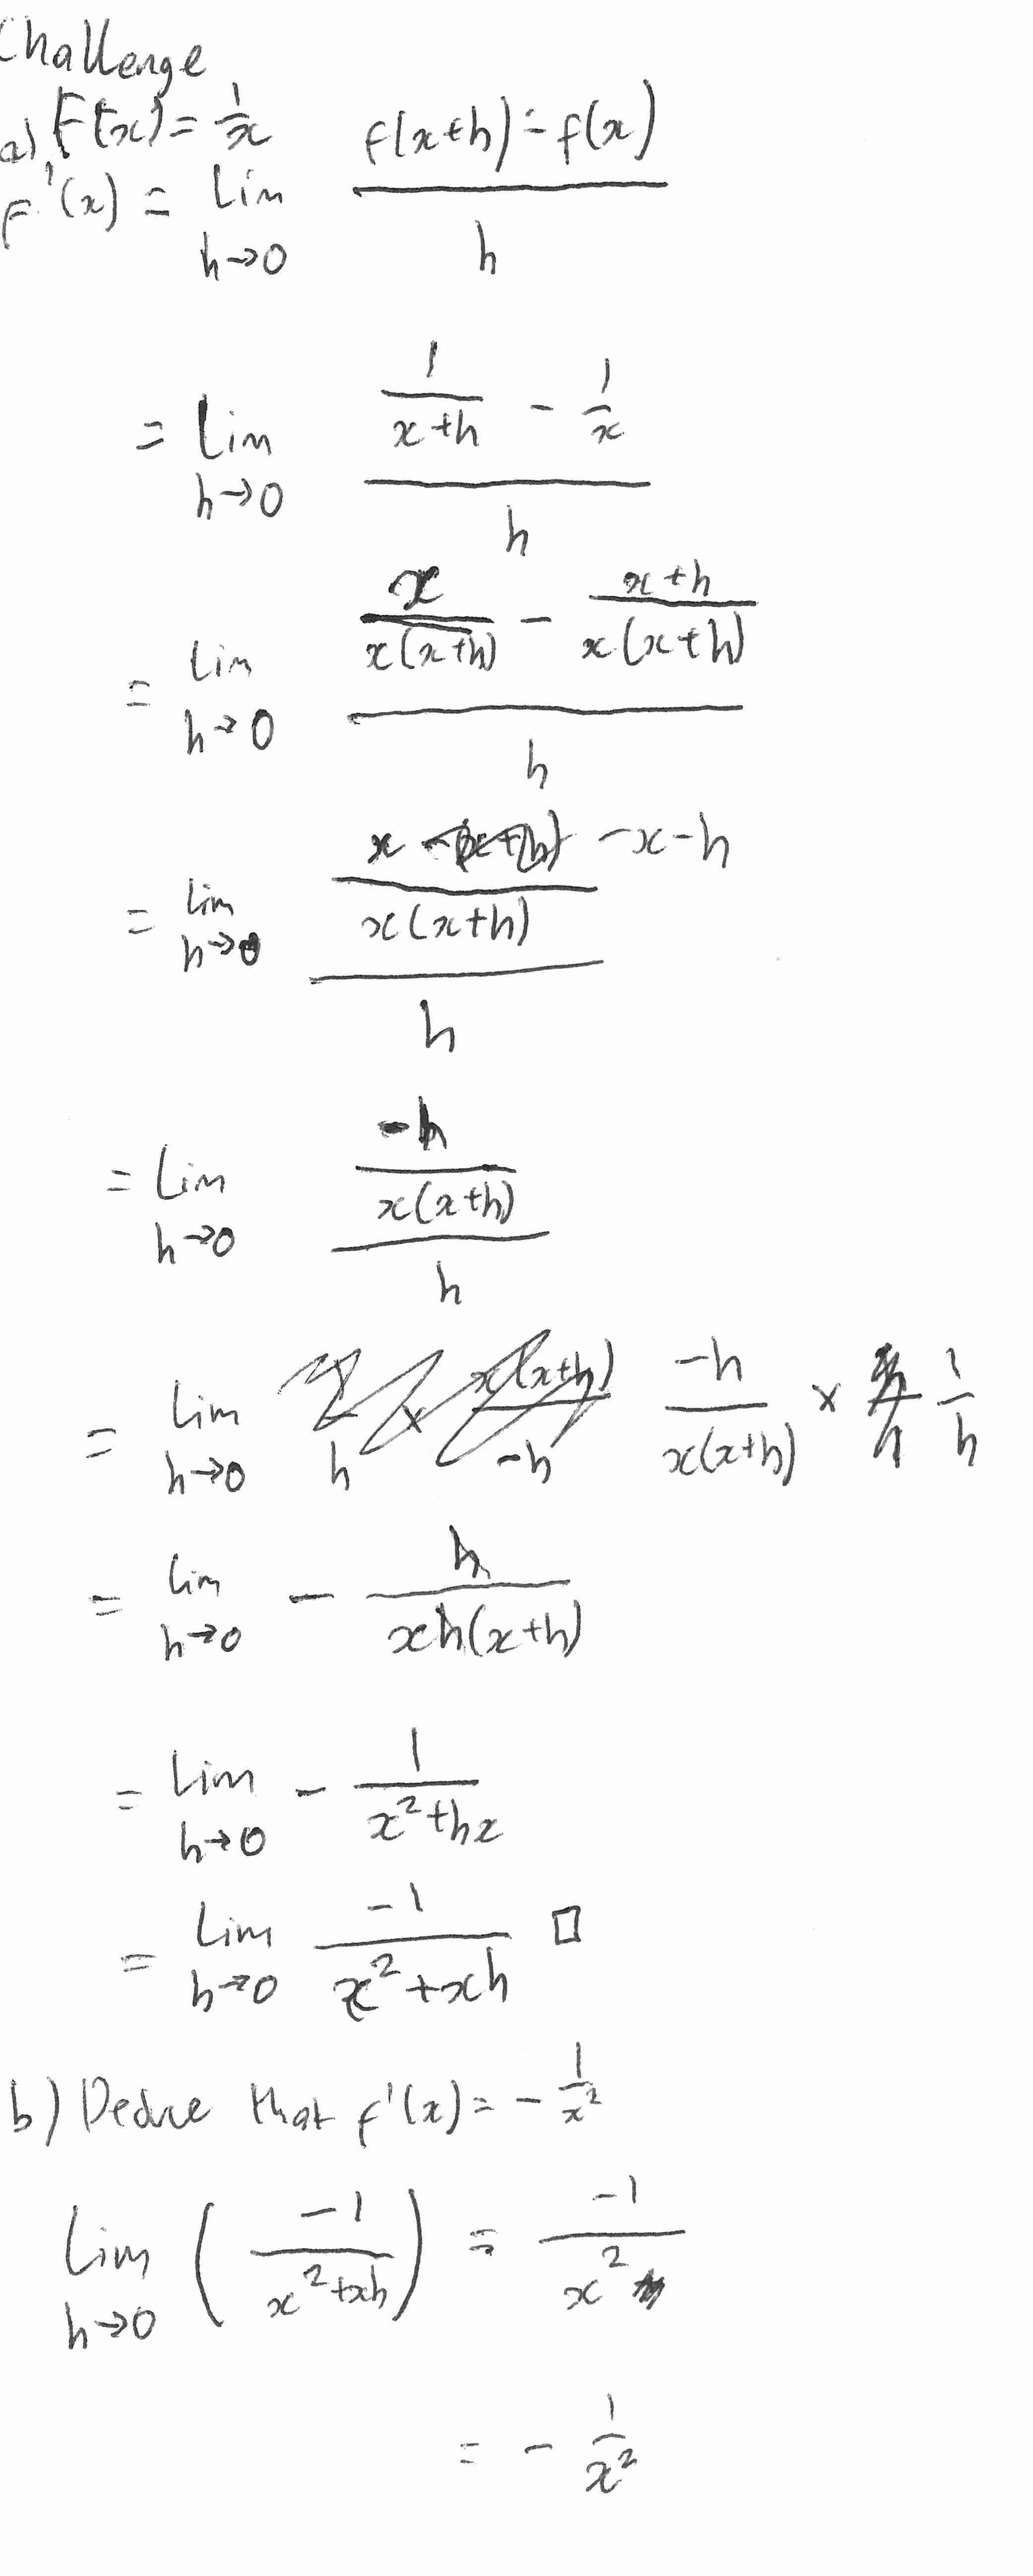 Challenge
a) f(x) = 1/x
f'(x) = lim h→0 (f(x+h) - f(x))/h
= lim h→0 (1/(x+h) - 1/x)/h
= lim h→0 (x/(x(x+h)) - (x+h)/(x(x+h)))/h
= lim h→0 ((x -x-h)/(x(x+h)))/h
= lim h→0 (-h/(x(x+h)))/h
= lim h→0 -h/(x(x+h)) × 1/h
= lim h→0 - h/(xh(x+h))
= lim h→0 - 1/(x²+hx)
= lim h→0 -1/(x²+xh) □
b) Deduce that f'(x) = - 1/x²
lim h→0 (-1/(x²+xh)) = -1/x²
= - 1/x²